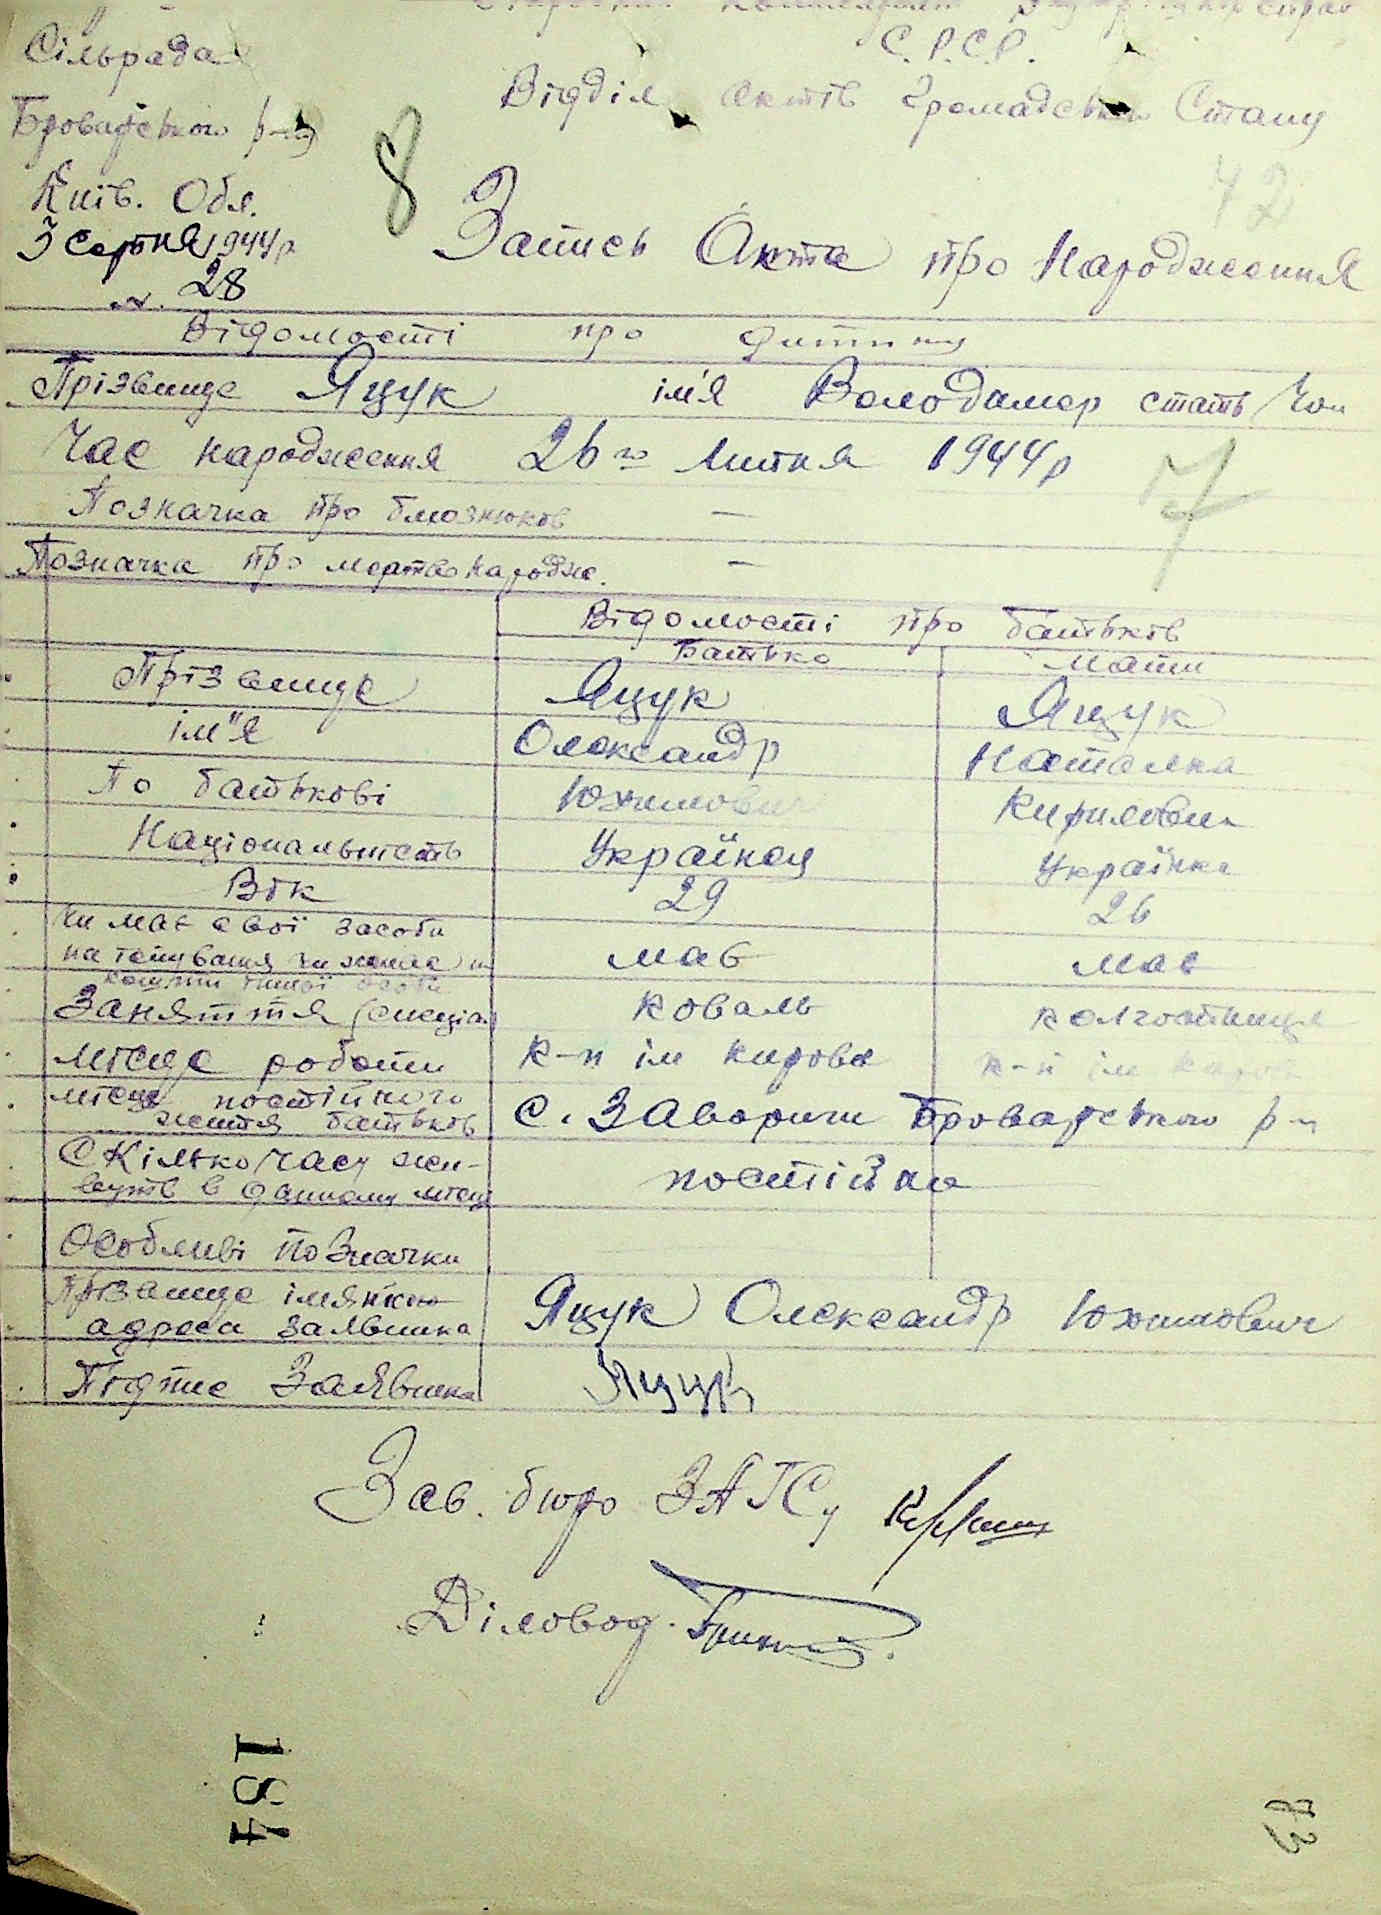 Сільрада
С.Р.С.Р.
Броварського р-ну
Відділ Актів Громадського Стану
Київ. Обл.
8
42
3 Серпня 1944 р
Запись Акта про Народження
N. 28
Відомості про дитину
Прізвище Яцук ім'я Володимер стать Чол
Час народження 26го Липня 1944 р
7
Позначка про близнюків —
Позначка про мертвонародж. —
Відомості про батьків
Батько Мати
Прізвище Яцук Яцук
ім"я Олександр Наталка
По батькові Юхимович Кириловна
Національність Українец Українка
Вік 29 26
Чи має свої засоби
на існування чи живе на має має
кошти іншої особи
Заняття (спеціал) коваль колгоспниця
Місце роботи к-п ім Кирова к-п ім Кирова
Місце постійного
життя батьків С. Заворичи Броварського р-н
Скілько часу жи-
вуть в данному місці постійно
Особливі позначки
Прізвище імя
адреса заявника Яцук Олександр Юхимович
Підпис Заявника Яцук
Зав. бюро ЗАГСу
Діловод.
184
73